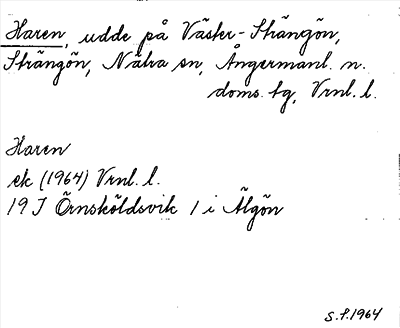 Haren, udde på Väster-Strängön,
Strängön, Nätra sn, Ångermanl. n.
doms. tg, Vrnl. l.
Haren
ek (1964) Vrnl. l.
19 J Örnsköldsvik 1 i Älgön
S.F. 1964